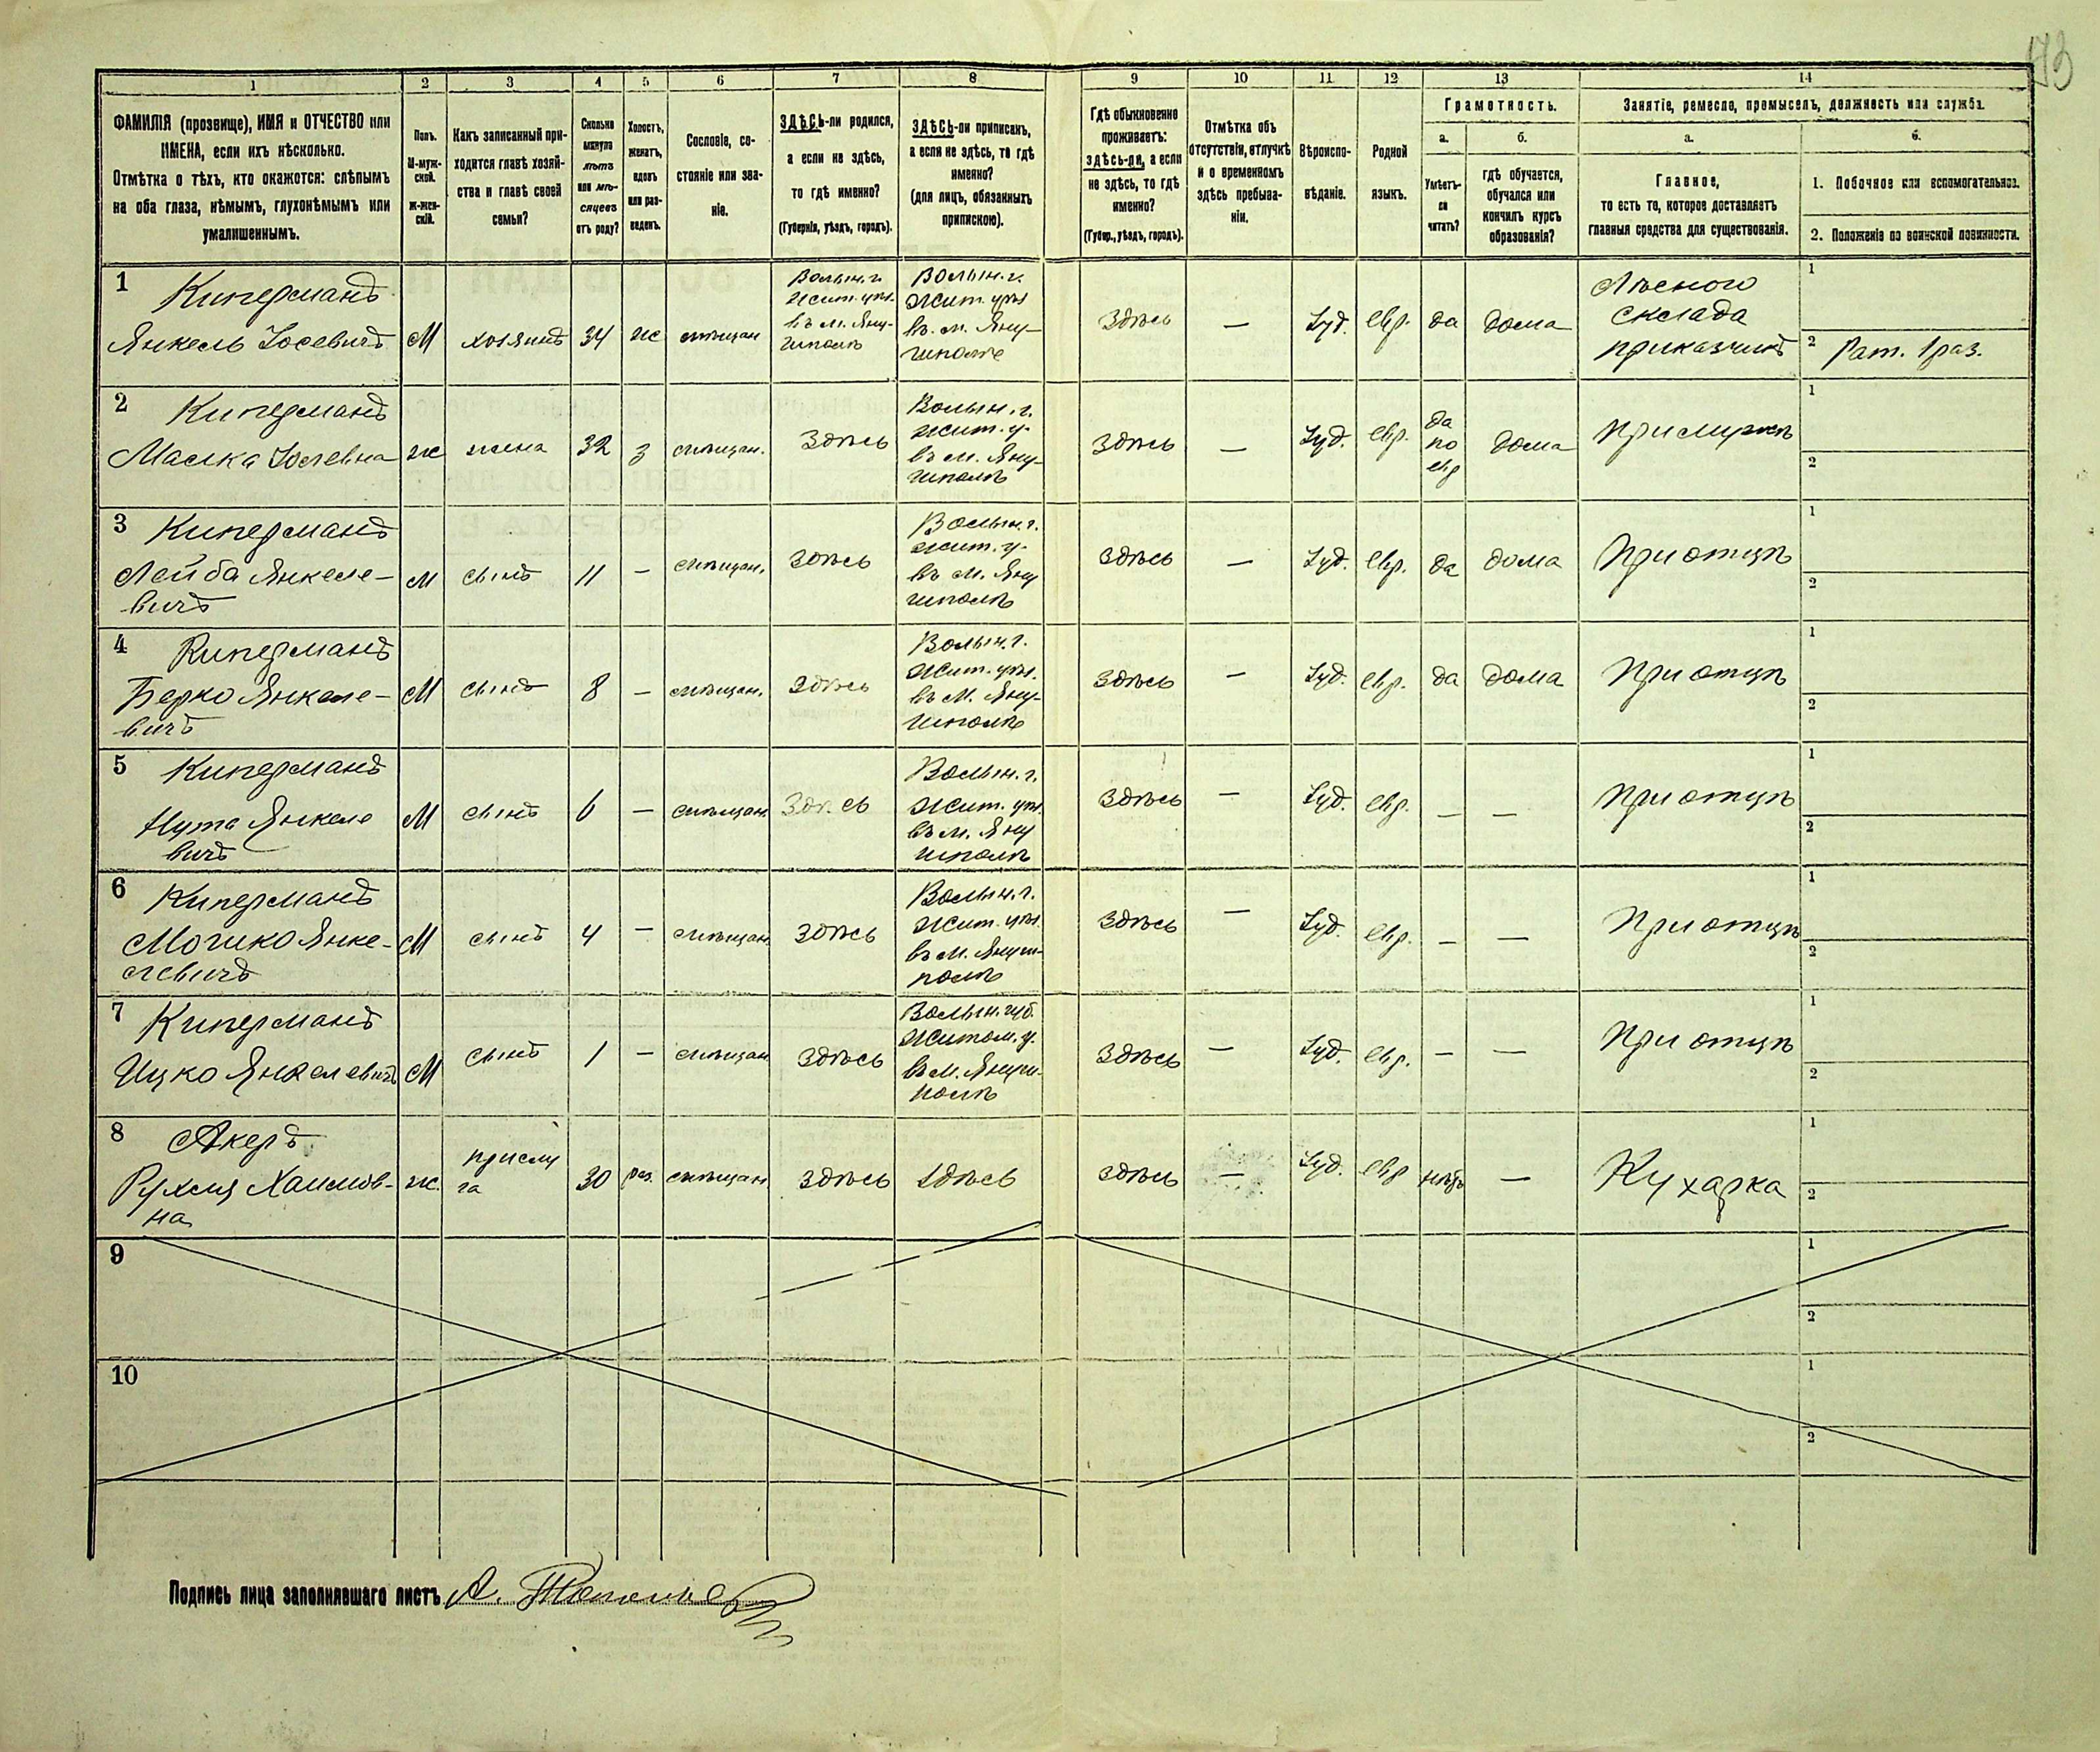 73
1 2 3 4 5 6 7 8 9 10 11 12 13 14
ФАМИЛІЯ (прозвище), ИМЯ и ОТЧЕСТВО или
ИМЕНА, если ихъ нѣсколько.
Отмѣтка о тѣхъ, кто окажется: слѣпымъ
на оба глаза, нѣмымъ, глухонѣмымъ или
умалишеннымъ.
Полъ.
М-муж-
ской.
Ж-жен-
скій.
Какъ записанный при-
ходится главѣ хозяй-
ства и главѣ своей
семьи?
Сколько
минуло
лѣтъ
или мѣ-
сяцевъ
отъ роду?
Холостъ,
женатъ,
вдовъ
или раз-
веденъ.
Сословіе, со-
стояніе или зва-
ніе.
ЗДѢСЬ-ли родился,
а если не здѣсь,
то гдѣ именно?
(Губернія, уѣздъ, городъ).
ЗДѢСЬ-ли приписанъ,
а если не здѣсь, то гдѣ
именно?
(для лицъ, обязанныхъ
припискою).
Гдѣ обыкновенно
проживаетъ:
здѣсь-ли, а если
не здѣсь, то гдѣ
именно?
(Губер., уѣздъ, городъ).
Отмѣтка объ
отсутствіи, отлучкѣ
и о временномъ
здѣсь пребыва-
ніи.
Вѣроиспо-
вѣданіе.
Родной
языкъ.
Грамотность.
а.
Умѣетъ-
ли
читать?
б.
гдѣ обучается,
обучался или
кончилъ курсъ
образованія?
Занятіе, ремесло, промыселъ, должность или служба.
а.
Главное,
то есть то, которое доставляетъ
главныя средства для существованія.
б.
1. Побочное или вспомогательное.
2. Положеніе по воинской повинности.
1 Киперманъ
Янкель Іосевичъ
М
хозяинъ
34
ж
мѣщан
Волын. г.
Жит. уѣз.
въ м. Яну-
шполѣ
Волын. г.
Жит. уѣз
въ. м. Яну-
шполѣ
Здѣсь
—
Іуд.
евр.
да
дома
Лѣсного
склада
приказчикъ
1
2 Рат. 1 раз.
2 Киперманъ
Малка
ж
жена
32
з
мѣщан.
Здѣсь
Волын. г.
жит. у.
въ м. Яну-
шполѣ
Здѣсь
—
Іуд.
евр.
да
по
евр
дома
При мужѣ
1
2
3 Киперманъ
Лейба Янкеле-
вичъ
М
сынъ
11
—
мѣщан.
здѣсь
Волын. г.
жит. у.
въ м. Яну
шполѣ
здѣсь
—
Іуд.
евр.
да
дома
При отцѣ
1
2
4 Киперманъ
Берко Янкеле-
вичъ
М
сынъ
8
—
мѣщан.
здѣсь
Волын. г.
жит. уѣз.
въ м. Яну-
шполѣ
здѣсь
—
Іуд.
евр.
да
дома
При отцѣ
1
2
5 Киперманъ
Нута Янкеле
вичъ
М
сынъ
6
—
мѣщан.
Здѣсь
Волын. г.
Жит. уѣз.
въ м. Яну
шполѣ
здѣсь
—
Іуд.
евр.
—
—
При отцѣ
1
2
6 Киперманъ
Мошко Янке-
левичъ
М
сынъ
4
—
мѣщан
здѣсь
Волын. г.
жит. уѣз.
въ м. Януш-
полѣ
здѣсь
—
Іуд.
евр.
—
—
При отцѣ
1
2
7 Киперманъ
Ицко Янкелевичъ
М
сынъ
1
—
мѣщан
здѣсь
Волын. губ.
житом. у.
въ м. Януш-
полѣ
здѣсь
—
Іуд.
евр.
—
—
При отцѣ
1
2
8 Акеръ
Рухля Хаимов-
на
ж.
прислу
га
30
раз.
мѣщан
здѣсь
здѣсь
здѣсь
—
Іуд.
евр
нѣтъ
—
Кухарка
1
2
9
1
2
10
1
2
Подпись лица заполнявшаго листъ А.